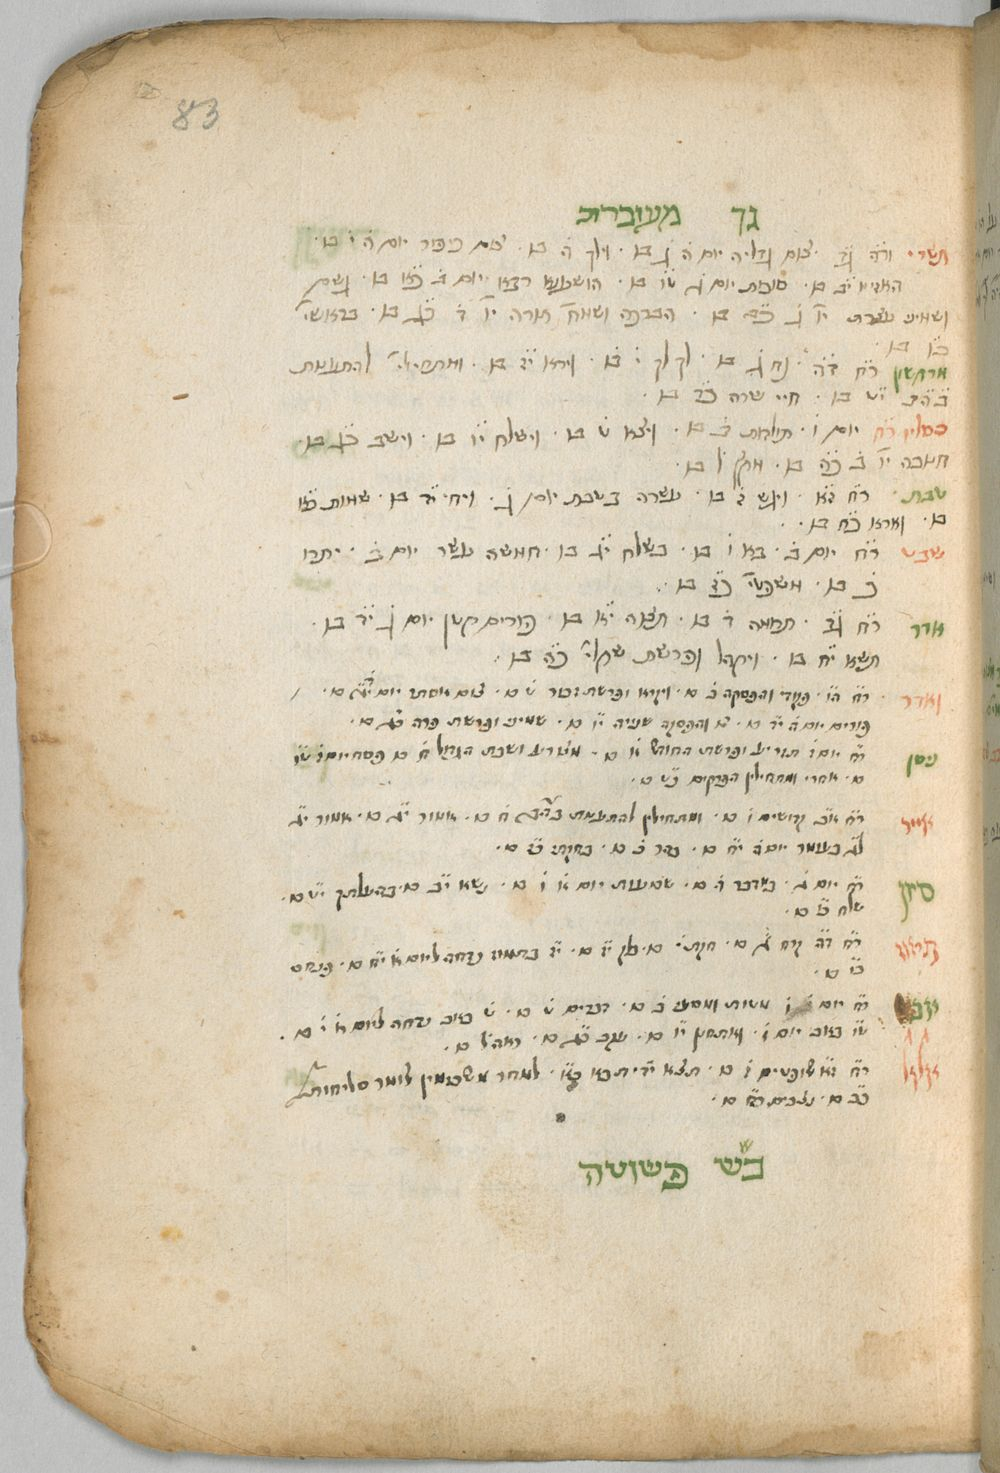 83
גך מעוברת
תשרי ור״ה ג״ד · צום גדליה יום ה׳ ג׳ בו · וילך ה׳ בו · צום כיפור יום ה׳ י׳ בו ·
האזינו י״ב בו · סוכות יום ג׳ ט״ו בו · הושענא רבא יום ב׳ כ״א בו · גשם
ושמיני עצרת יו׳ ג׳ כ״ב בו · הברכה ושמח׳ תורה יו׳ ד׳ כ״ג בו · בראשי׳
כ״ו בו
מרחשון ר״ח ד״ה · נח ג׳ בו · לך לך י׳ בו · וירא י״ז בו · ומתחילי׳ להתענות
בה״ב י״ט בו · חיי שרה כ״ד בו ·
כסליו ר״ח יום ו׳ · תולדות ב׳ בו · ויצא ט׳ בו · וישלח י״ו בו · וישב כ״ג בו ·
חנוכה יו׳ ב׳ כ״ה בו · מקץ ל׳ בו ·
טבת · ר״ח ז״א · ויגש ז׳ בו · עשרה בטבת יום ג׳ · ויחי י״ד בו · שמות כ״א
בו · וארא כ״ח בו ·
שבט ר״ח יום ב׳ · בא ו׳ בו · בשלח י״ג בו · חמשה עשר יום ב׳ · יתרו
כ׳ בו · משפטי׳ כ״ז בו ·
אדר ר״ח ג״ד · תרומה ד׳ בו · תצוה י״א בו · פורים קטן יום ג׳ י״ד בו ·
תשא י״ח בו · ויקהל ופרשת שקלי׳ כ״ה בו ·
ואדר ר״ח ה״ו · פקודי והפסקה ב׳ בו · ויקרא ופרשת זכור ט׳ בו · צום אסתר יום
פורים יום ה׳ י״ד בו · צו והפסקה שנייה י״ו בו · שמיני ופרשת פרה כ״ג בו ·
ניסן ר״ח יום ו׳ תזריע ופרשת החודש א׳ בו · מצורע ושבת הגדול ח׳ בו פסח יום ו׳ ט״ו
בו · אחרי ומתחילין הפרקים כ״ט בו ·
אייר ר״ח א״ב קדושים ו׳ בו · ומתחילין להתענות בה״ב · אמור י״ג בו · אמור י״ג
ל״ג בעומר יום ה׳ י״ח בו · בהר כ׳ בו · בחקתי כ״ז בו ·
סיון ר״ח יום ג׳ · במדבר ה׳ בו · שבועות יום א׳ ו׳ בו · נשא י״ב בו · בהעלתך י״ט בו ·
שלח כ״ו בו ·
תמוז ר״ח ד״ה קרח ג׳ בו · חקת י׳ בו · בלק י״ז בו · י״ז בתמוז נדחה ליום א׳ י״ח בו · פנחס
כ״ד בו ·
אב ר״ח יום ו׳ מטות ומסעי ב׳ בו · דברים ט׳ בו · ט׳ באב נדחה ליום א׳ י׳ בו ·
ט״ו באב יום ו׳ · ואתחנן י״ו בו · עקב כ״ג בו · ראה ל׳ בו ·
אלול ר״ח ז״א שופטים ו׳ בו · תצא י״ד תבא כ״א · למחר משכימין לומר סליחות
כ״ב בו · נצבים כ״ח בו ·
בש פשוטה